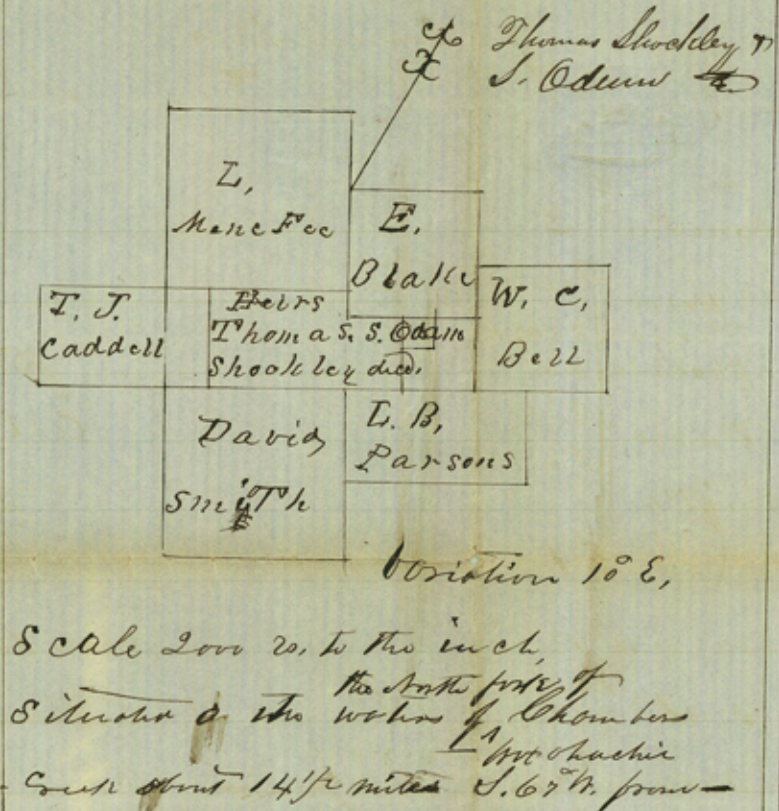 Thomas Shockley &
S. Odum
L,
MeneFee
E.
Blake
W. C,
Bell
T. J.
Caddell
Heirs
Thomas. S. Odam
Shockley died.
David
Smith
L. B,
Parsons
Variation 10° E,
Scale 2000 vs. to the inch,
the North fork of
Situated o the waters of Chambers
Waxahachie
Creek about 14 1/2 miles S. 67° W. from